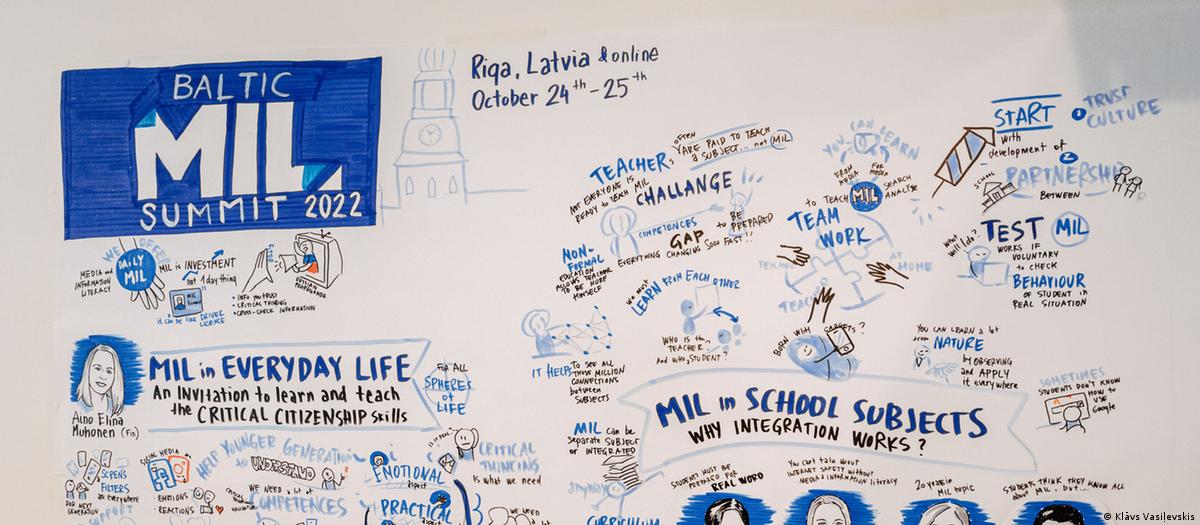 BALTIC
MIL
SUMMIT 2022
Riga, Latvia & online
October 24th - 25th
WE OFFER
DAILY
MIL
MEDIA and
INFORMATION
LITERACY
MIL is INVESTMENT
not 1 day thing
it can be like DRIVER
LICENCE
• INFO you TRUST
• CRITICAL THINKING
• CROSS-CHECK INFORMATION
RUSSIAN
PROPAGANDA
MIL in EVERYDAY LIFE
An INVITATION to learn and teach
the CRITICAL CITIZENSHIP Skills
FOR ALL
SPHERES
of
LIFE
Aino Elina
Muhonen (Fin)
SCREENS
FILTERS
are everywhere
FOR NEXT
GENERATION
SUPPORT
SOCIAL MEDIA
- EMOTIONS
- REACTIONS
HELP YOUNGER GENERATION
to UNDERSTAND
WE NEED a lot of
COMPETENCES
EMOTIONAL
aspect
PRACTICAL
CRITICAL
THINKING
Is what we need
WE NEED
TEACHERS
OFTEN
ARE PAID TO TEACH
A SUBJECT... not MIL
NOT EVERYONE IS
READY to teach MIL
CHALLANGE
COMPETENCES
GAP
to BE
PREPARED
EVERYTHING CHANGING Sooo FAST!!
NON-
FORMAL
EDUCATION
ALLOWS TEACHER
TO BE MORE
HIMSELF
we must
LEARN FROM EACH OTHER
WHO IS the
TEACHER?
And who, STUDENT?
IT HELPS
TO SEE ALL
THOSE MILLION
CONNECTIONS
between
SUBJECTS
YOU CAN LEARN
FROM
MEDIA
FOR
MEDIA
to TEACH
MIL
SEARCH
ANALYSE
TEAM
WORK
TEAM
AT
HOME
TEACHER
BORN WITH GADGETS?
START
with
development of
1 TRUST
CULTURE
2
PARTNERSHIP
SCHOOL
BETWEEN
What
will I do?
TEST MIL
WORKS IF
VOLUNTARY
to CHECK
BEHAVIOUR
OF STUDENT in
REAL SITUATION
YOU CAN LEARN a lot
from NATURE
by OBSERVING
and APPLY
it everywhere
SOMETIMES
STUDENTS DON'T KNOW
HOW to
USE
Google
MIL in SCHOOL SUBJECTS
WHY INTEGRATION WORKS?
MIL can be
separate SUBJECT
or INTEGRATED
anyway
CURRICULUM
STUDENTS MUST BE
PREPARED FOR
REAL WORD
You can't talk about
INTERNET SAFETY without
MEDIA & INFORMATION literacy
20 years in
MIL topic
STUDENTS THINK THEY KNOW ALL
about MIL, but...
© Klāvs Vasilevskis